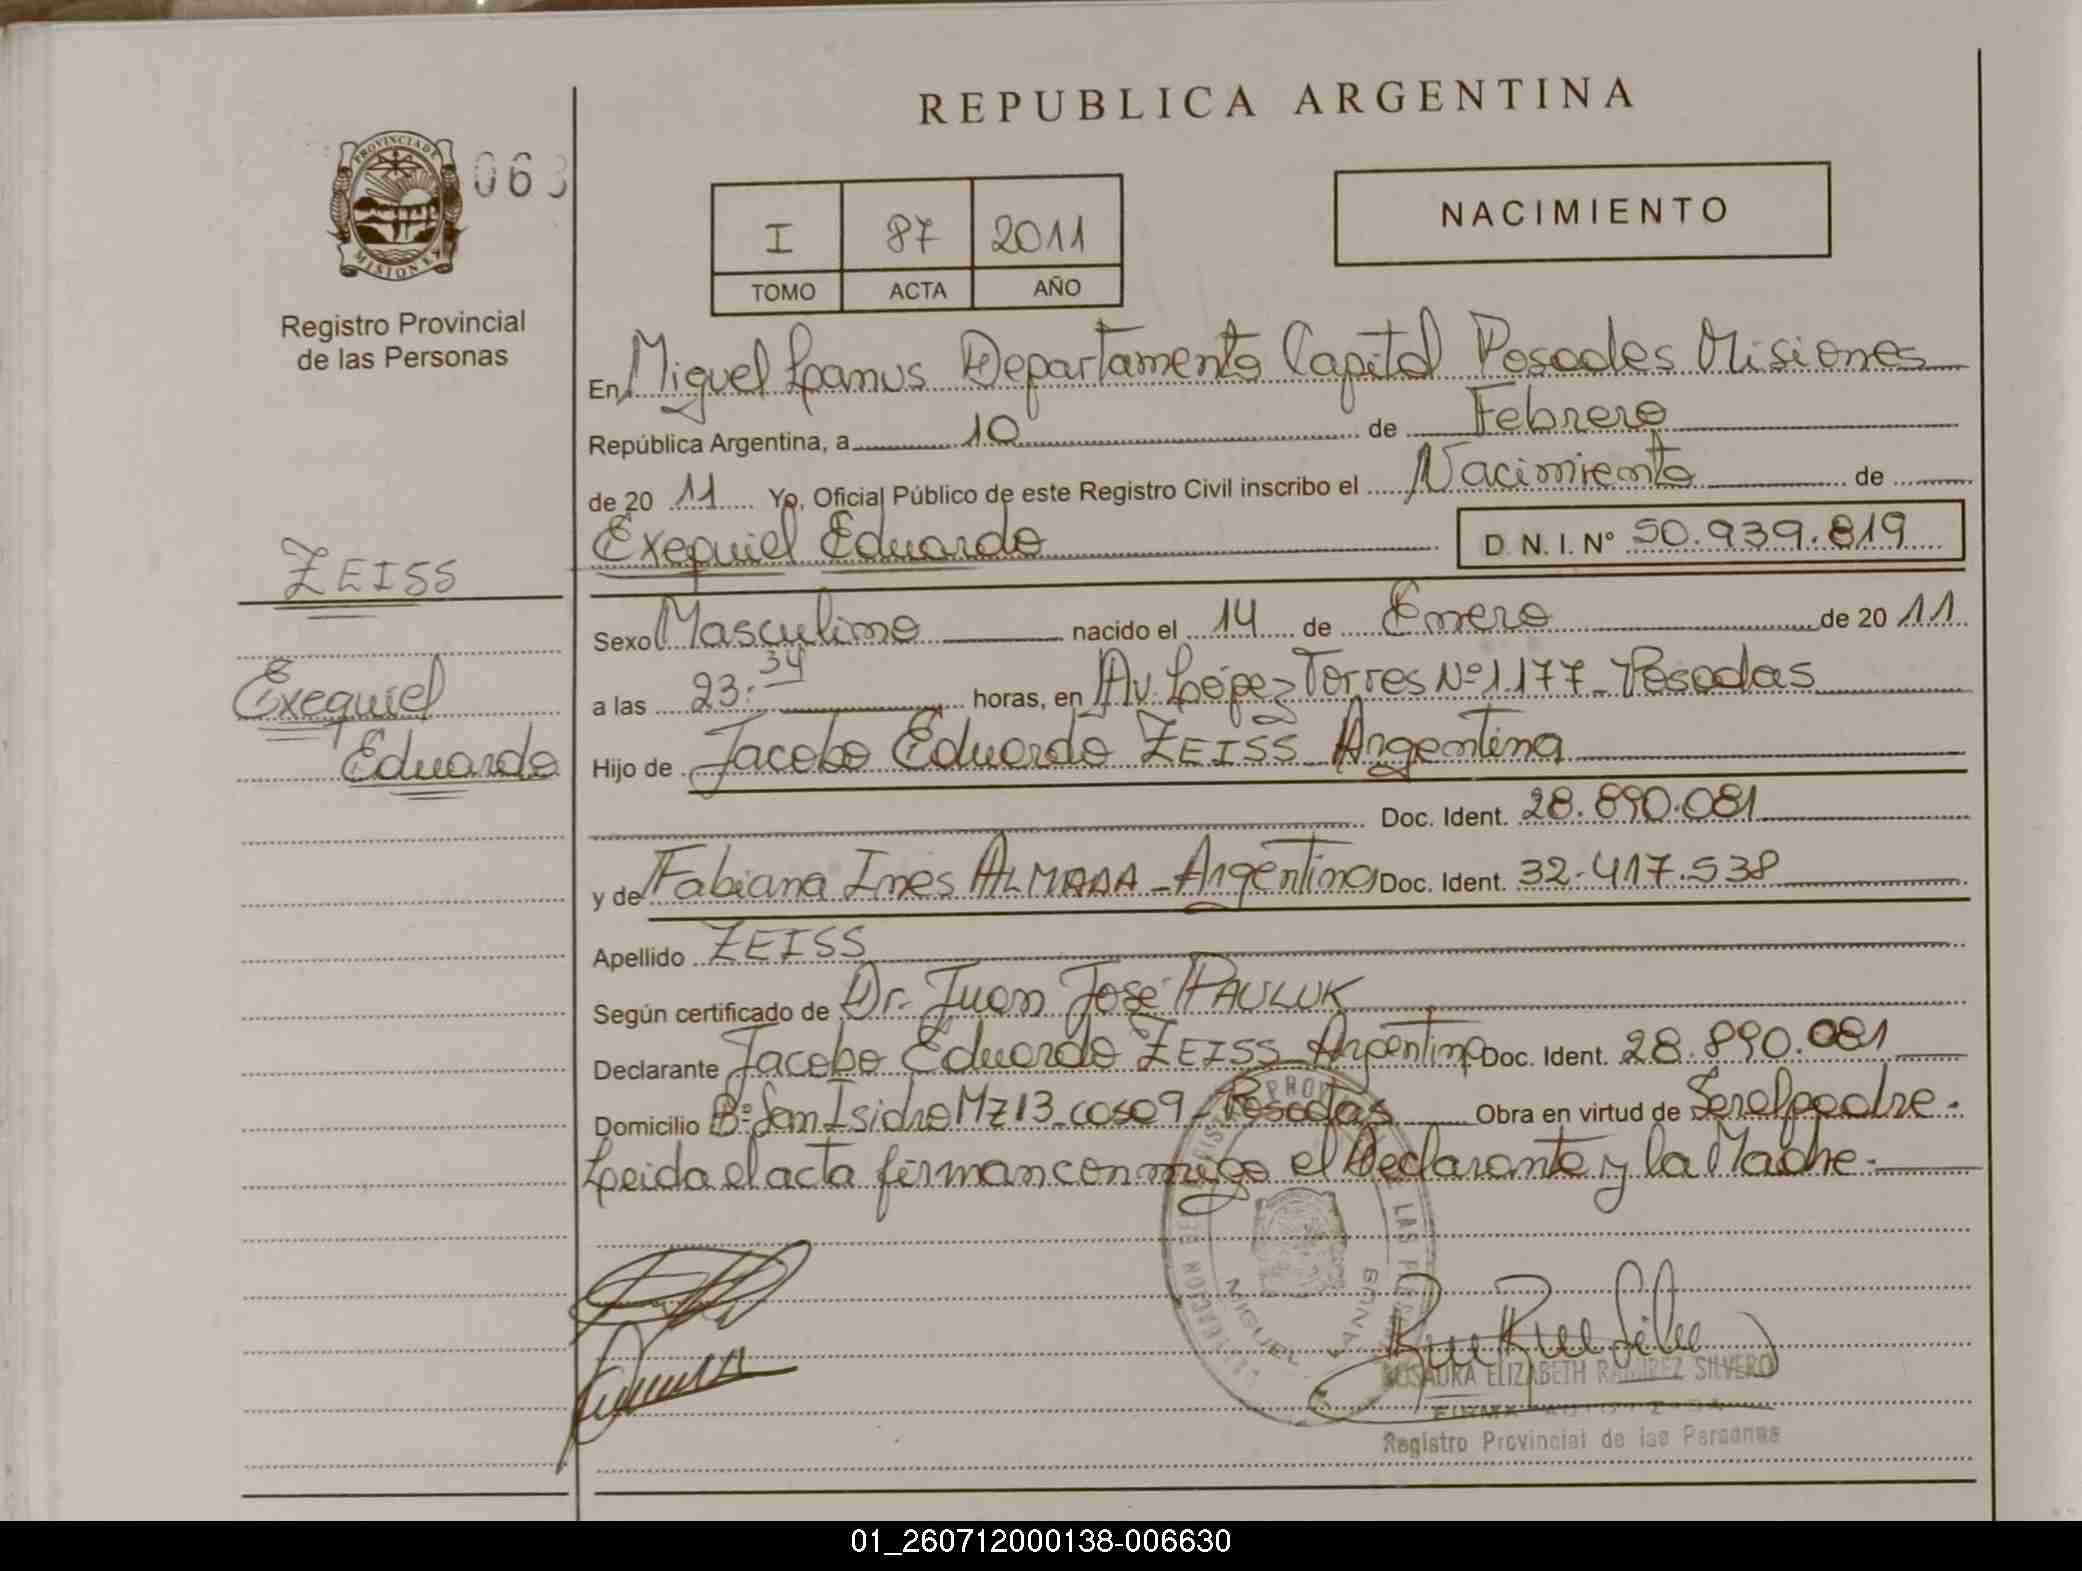 REPUBLICA ARGENTINA
PROVINCIA DE
MISIONES
063
Registro Provincial
de las Personas
I 87 2011
TOMO ACTA AÑO
NACIMIENTO
En Miguel Lanus Departamento Capital Posadas Misiones
República Argentina, a 10 de Febrero
de 2011 Yo, Oficial Público de este Registro Civil inscribo el Nacimiento de
Exequiel Eduardo D.N.I. Nº 50.939.819
ZEISS
Exequiel
Eduardo
Sexo Masculino nacido el 14 de Enero de 2011
a las 23:34 horas, en Av. López Torres Nº 1.177 - Posadas
Hijo de Jacobo Eduardo ZEISS - Argentina
Doc. Ident. 28.890.081
y de Fabiana Ines ALMADA - Argentina Doc. Ident. 32.417.538
Apellido ZEISS
Según certificado de Dr. Juan José PAULUK
Declarante Jacobo Eduardo ZEISS - Argentino Doc. Ident. 28.890.081
Domicilio Bº San Isidro Mz 13 - casa 9 - Posadas Obra en virtud de Ser el padre.
Leida el acta firman conmigo el Declarante y la Madre.
MIGUEL LANUS
ROSAURA ELIZABETH RAMIREZ SILVERO
FIRMA AUTORIZADA
Registro Provincial de las Personas
01_260712000138-006630